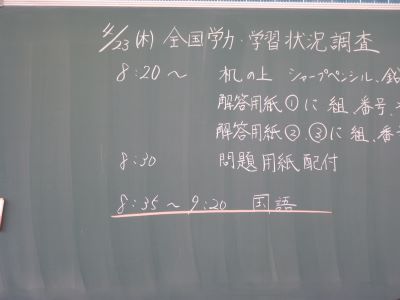 4/23(木) 全国学力・学習状況調査
8:20～ 机の上 シャープペンシル、
解答用紙①に組、番号、
解答用紙②、③に組、番
8:30 問題用紙配付
8:35～9:20 国語